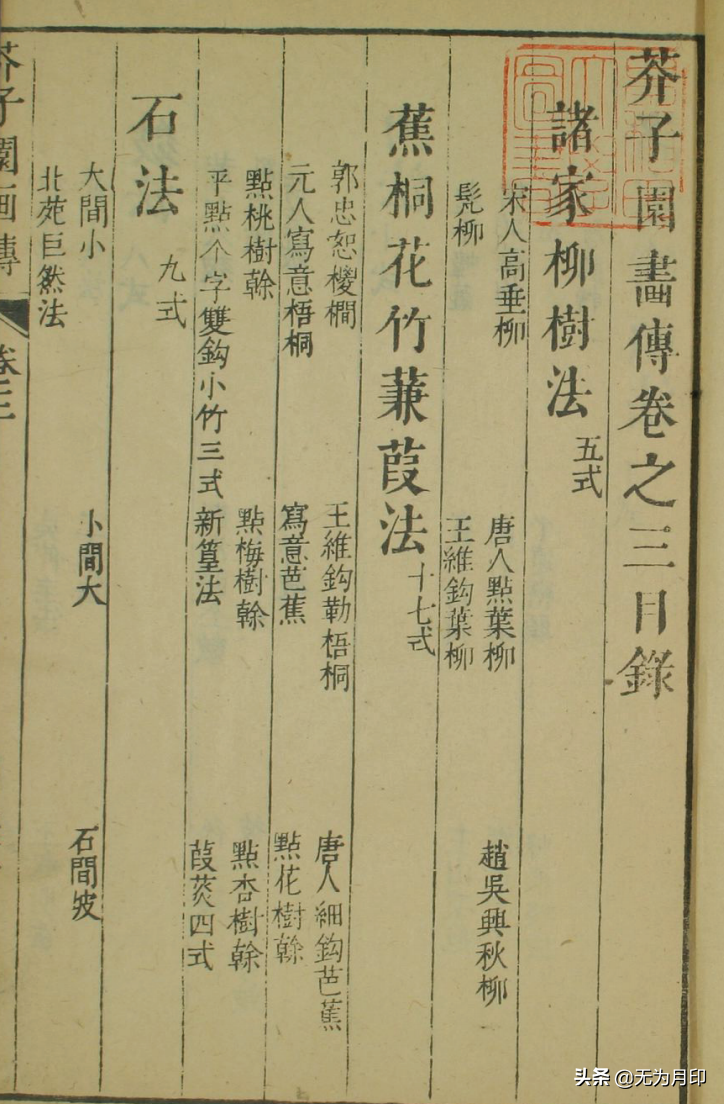 芥子園畵傳卷之三目錄
諸家柳樹法 五式
宋人高垂柳 唐人點葉柳 趙吳興秋柳
髠柳 王維鈎葉柳
蕉桐花竹蒹葭法 十七式
郭忠恕椶櫚 王維鈎勒梧桐 唐人細鈎芭蕉
元人寫意梧桐 寫意芭蕉 點花樹榦
點桃樹榦 點梅樹榦 點杏樹榦
平點个字雙鈎小竹三式 新篁法 葭菼四式
石法 九式
大間小 小間大 石間坡
北苑巨然法
芥子園画傳 卷三
头条 @无为月印